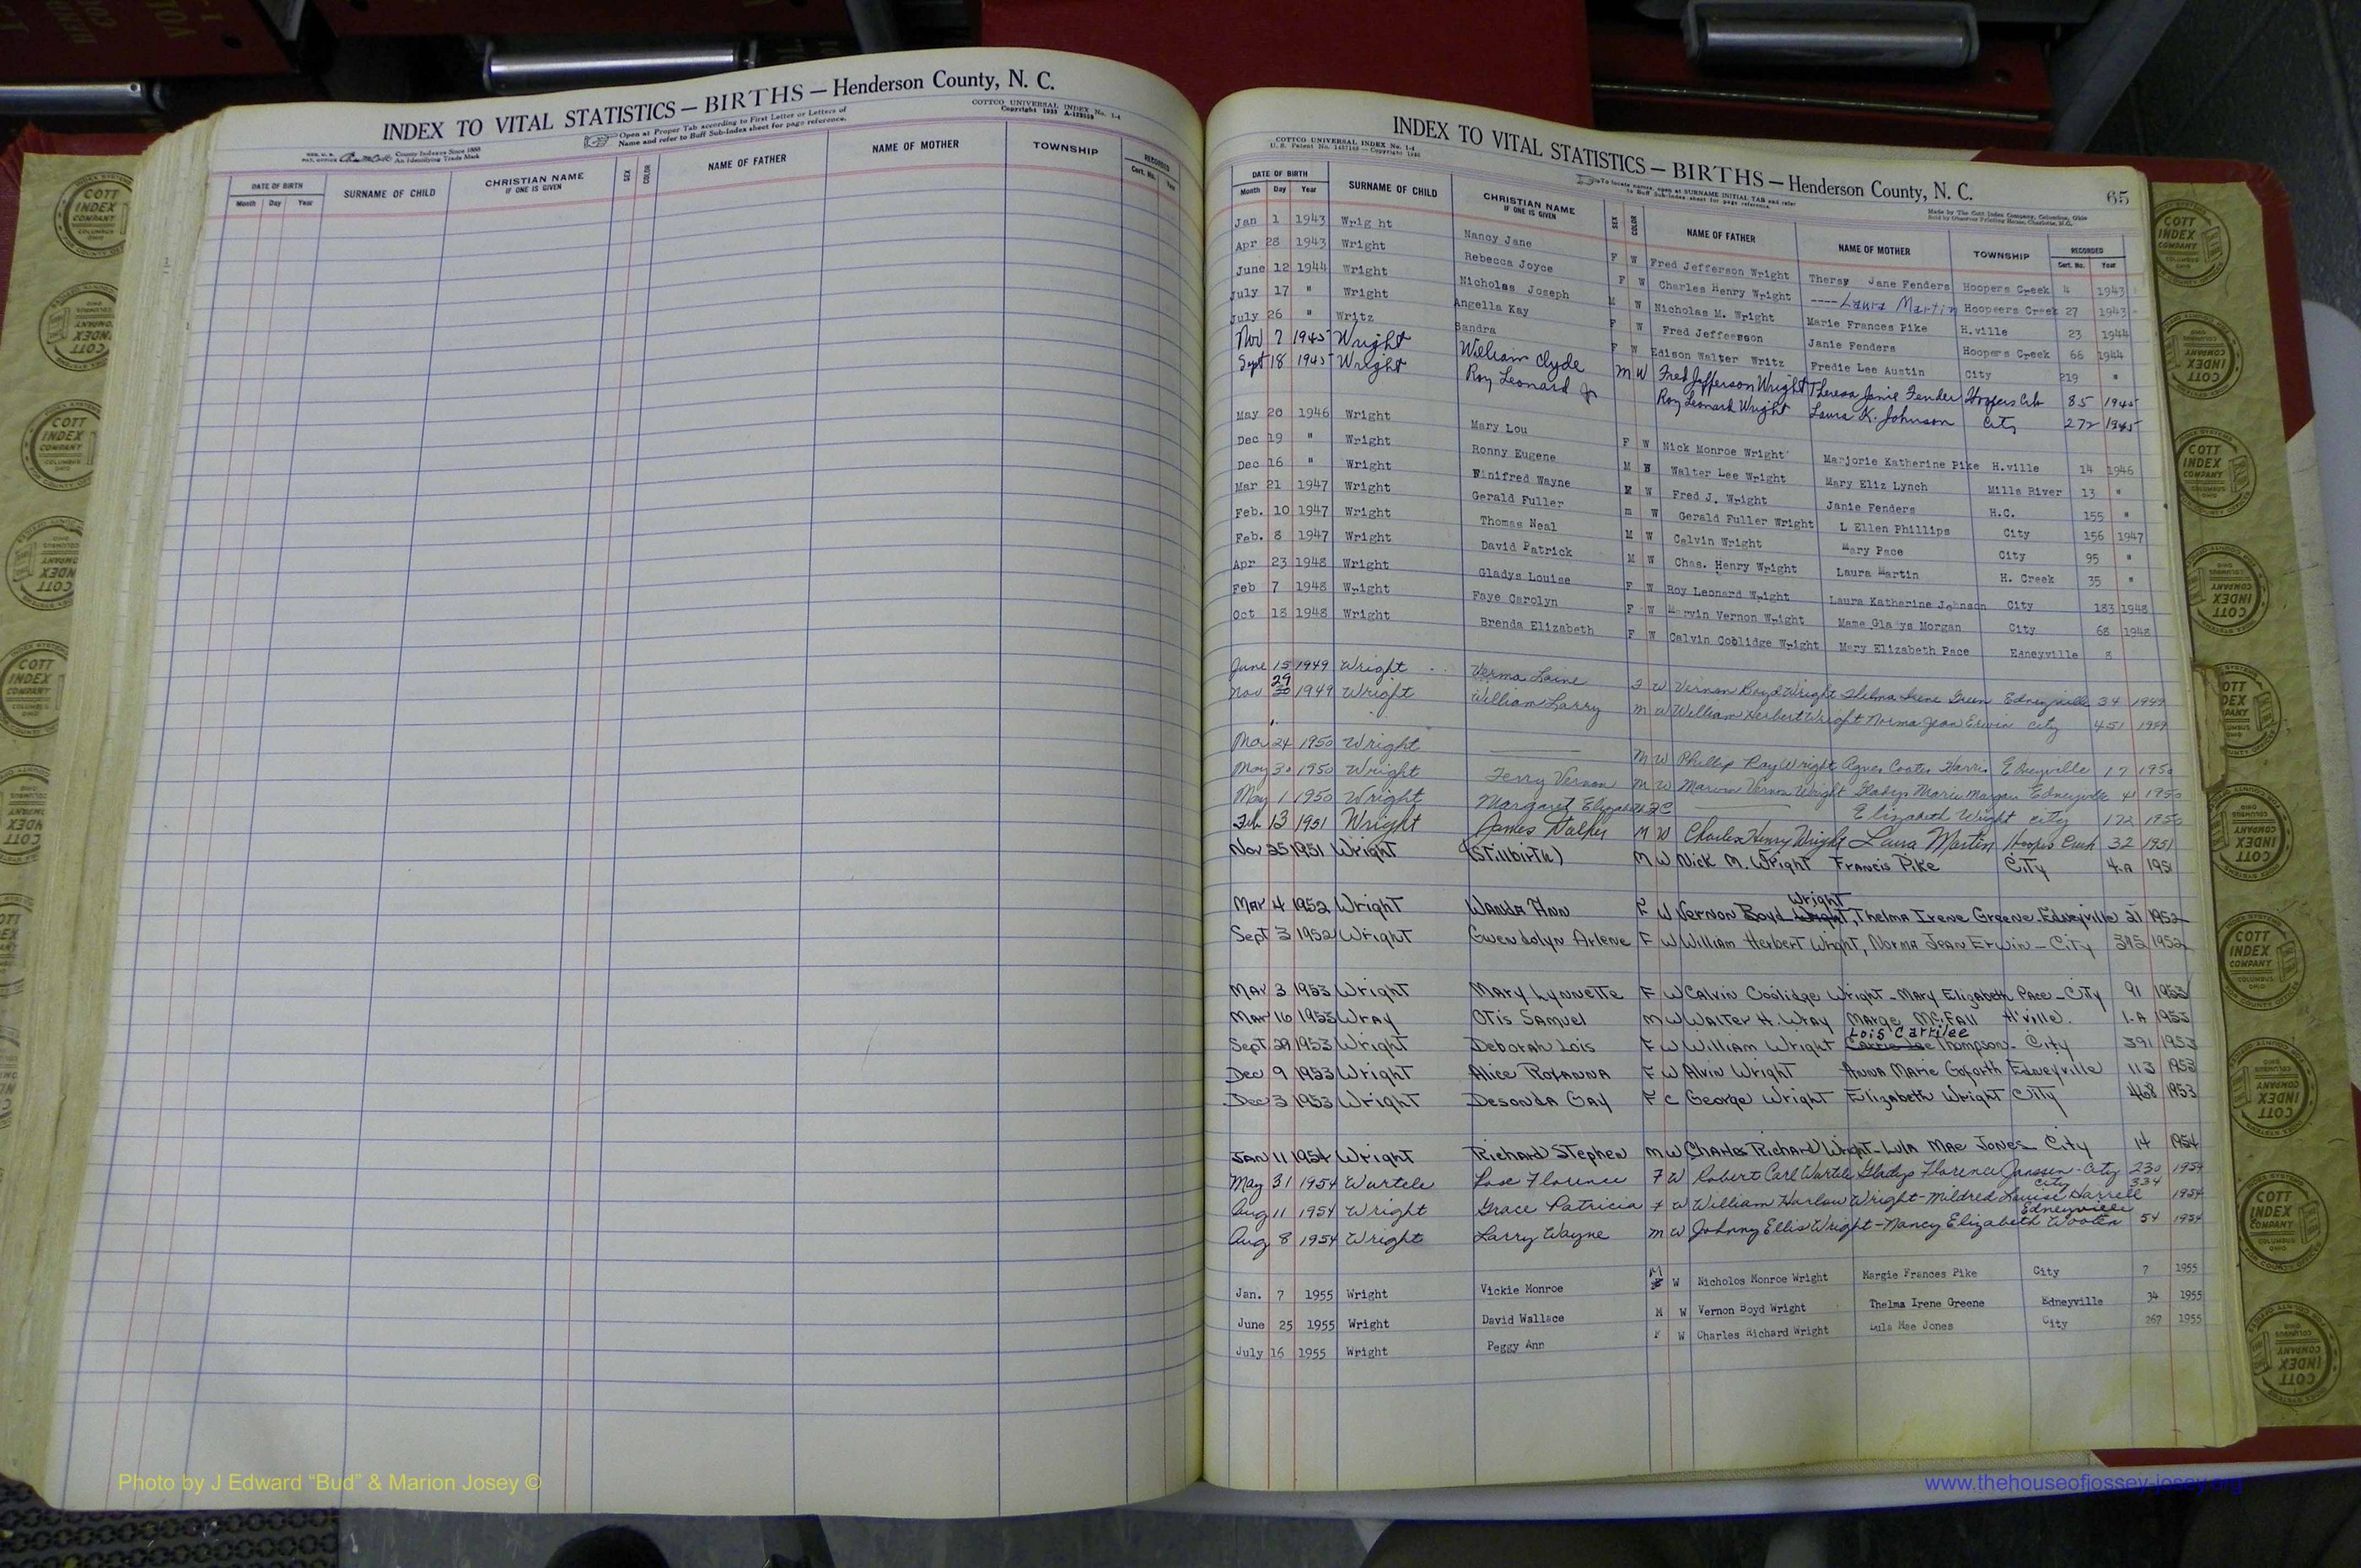 INDEX TO VITAL STATISTICS — BIRTHS — Henderson County, N. C.
COTTCO UNIVERSAL INDEX No. 1-4
Copyright 1935 A-123159
Open at Proper Tab according to First Letter or Letters of
Name and refer to Buff Sub-Index sheet for page reference.
County Indexes Since 1888
An Identifying Trade Mark
DATE OF BIRTH
Month Day Year
SURNAME OF CHILD
CHRISTIAN NAME
IF ONE IS GIVEN
SEX
COLOR
NAME OF FATHER
NAME OF MOTHER
TOWNSHIP
RECORDED
Cert. No. Year
INDEX TO VITAL STATISTICS — BIRTHS — Henderson County, N. C.
65
COTTCO UNIVERSAL INDEX No. 1-4
To locate names, open at SURNAME INITIAL TAB and refer
to Buff Sub-Index sheet for page reference.
Made by The Cott Index Company, Columbus, Ohio
Sold by Observer Printing House, Charlotte, N.C.
DATE OF BIRTH
Month Day Year
SURNAME OF CHILD
CHRISTIAN NAME
IF ONE IS GIVEN
SEX
COLOR
NAME OF FATHER
NAME OF MOTHER
TOWNSHIP
RECORDED
Cert. No. Year
Jan 1 1943 Wrig ht Nancy Jane F W Fred Jefferson Wright Thersy Jane Fenders Hoopers Creek 4 1943
Apr 28 1943 Wright Rebecca Joyce F W Charles Henry Wright ----Laura Martin Hoopsers Creek 27 1943
June 12 1944 Wright Nicholas Joseph M W Nicholas M. Wright Marie Frances Pike H.ville 23 1944
July 17 " Wright Angella Kay F W Fred Jeffeerson Janie Fenders Hoopers Creek 66 1944
July 26 " Writz Sandra F W Edison Walter Writz Fredie Lee Austin City 219 "
Nov 7 1945 Wright William Clyde M W Fred Jefferson Wright Theresa Janie Fender Hoopers Crk 85 1945
Sept 18 1945 Wright Roy Leonard Jr Roy Leonard Wright Laura K. Johnson City 272 1945
May 20 1946 Wright Mary Lou F W Nick Monroe Wright Marjorie Katherine Pike H.ville 14 1946
Dec 19 " Wright Ronny Eugene M W Walter Lee Wright Mary Eliz Lynch Mills River 13 "
Dec 16 " Wright Winifred Wayne M W Fred J. Wright Janie Fenders H.C. 155 "
Mar 21 1947 Wright Gerald Fuller m W Gerald Fuller Wright L Ellen Phillips City 156 1947
Feb. 10 1947 Wright Thomas Neal M W Calvin Wright Mary Pace City 95 "
Feb. 8 1947 Wright David Patrick M W Chas. Henry Wright Laura Martin H. Creek 35 "
Apr 23 1948 Wright Gladys Louise F W Roy Leonard Wright Laura Katherine Johnson City 183 1948
Feb 7 1948 Wright Faye Carolyn F W Marvin Vernon Wright Mame Gladys Morgan City 68 1948
Oct 18 1948 Wright Brenda Elizabeth F W Calvin Coolidge Wright Mary Elizabeth Pace Edneyville 8
June 15 1949 Wright Verma Laine F W Vernon Boyd Wright Thelma Irene Green Edneyville 34 1949
Nov 29 1949 Wright William Larry M W William Herbert Wright Norma Jean Erwin City 451 1949
Mar 24 1950 Wright M W Phillip Ray Wright Agnes Coates Harris Edneyville 17 1950
May 30 1950 Wright Terry Vernon M W Marvin Vernon Wright Gladys Marie Morgan Edneyville 41 1950
May 1 1950 Wright Margaret Elizabeth F C Elizabeth Wright City 172 1950
Feb 13 1951 Wright James Walker M W Charles Henry Wright Laura Martin Hoopers Creek 32 1951
Nov 25 1951 Wright (Stillbirth) M W Nick M. Wright Francis Pike City 4-A 1951
Wright
Mar 4 1952 Wright Wanda Ann F W Vernon Boyd Wright, Thelma Irene Greene-Edneyville 21 1952
Sept 3 1952 Wright Gwendolyn Arlene F W William Herbert Wright, Norma Jean Erwin - City 395 1952
Mar 3 1953 Wright Mary Lynnette F W Calvin Coolidge Wright - Mary Elizabeth Pace - City 91 1953
Mar 16 1953 Wray Otis Samuel M W Walter H. Wray Marge McFall H'ville. 1-A 1953
Lois Carrilee
Sept 29 1953 Wright Deborah Lois F W William Wright Carrie Lee Thompson - City 391 1953
Dec 9 1953 Wright Alice Roxanna F W Alvin Wright Anna Marie Goforth Edneyville 113 1953
Dec 3 1953 Wright Desonda Gay F C George Wright Elizabeth Wright City 468 1953
Jan 11 1954 Wright Richard Stephen M W Charles Richard Wright - Lula Mae Jones - City 14 1954
May 31 1954 Wurtele Rose Florence F W Robert Carl Wurtele Gladys Florence Janssen - City 230 1954
City 334
Aug 11 1954 Wright Grace Patricia F W William Harlow Wright - Mildred Louise Harrell 1954
Edneyville
Aug 8 1954 Wright Larry Wayne M W Johnny Ellis Wright - Nancy Elizabeth Wooten 54 1954
Jan. 7 1955 Wright Vickie Monroe M W Nicholos Monroe Wright Margie Frances Pike City 7 1955
June 25 1955 Wright David Wallace M W Vernon Boyd Wright Thelma Irene Greene Edneyville 34 1955
July 16 1955 Wright Peggy Ann F W Charles Richard Wright Lula Mae Jones City 267 1955
COTT INDEX COMPANY
COLUMBUS OHIO
Photo by J Edward “Bud” & Marion Josey ©
www.thehouseofjossey-josey.org